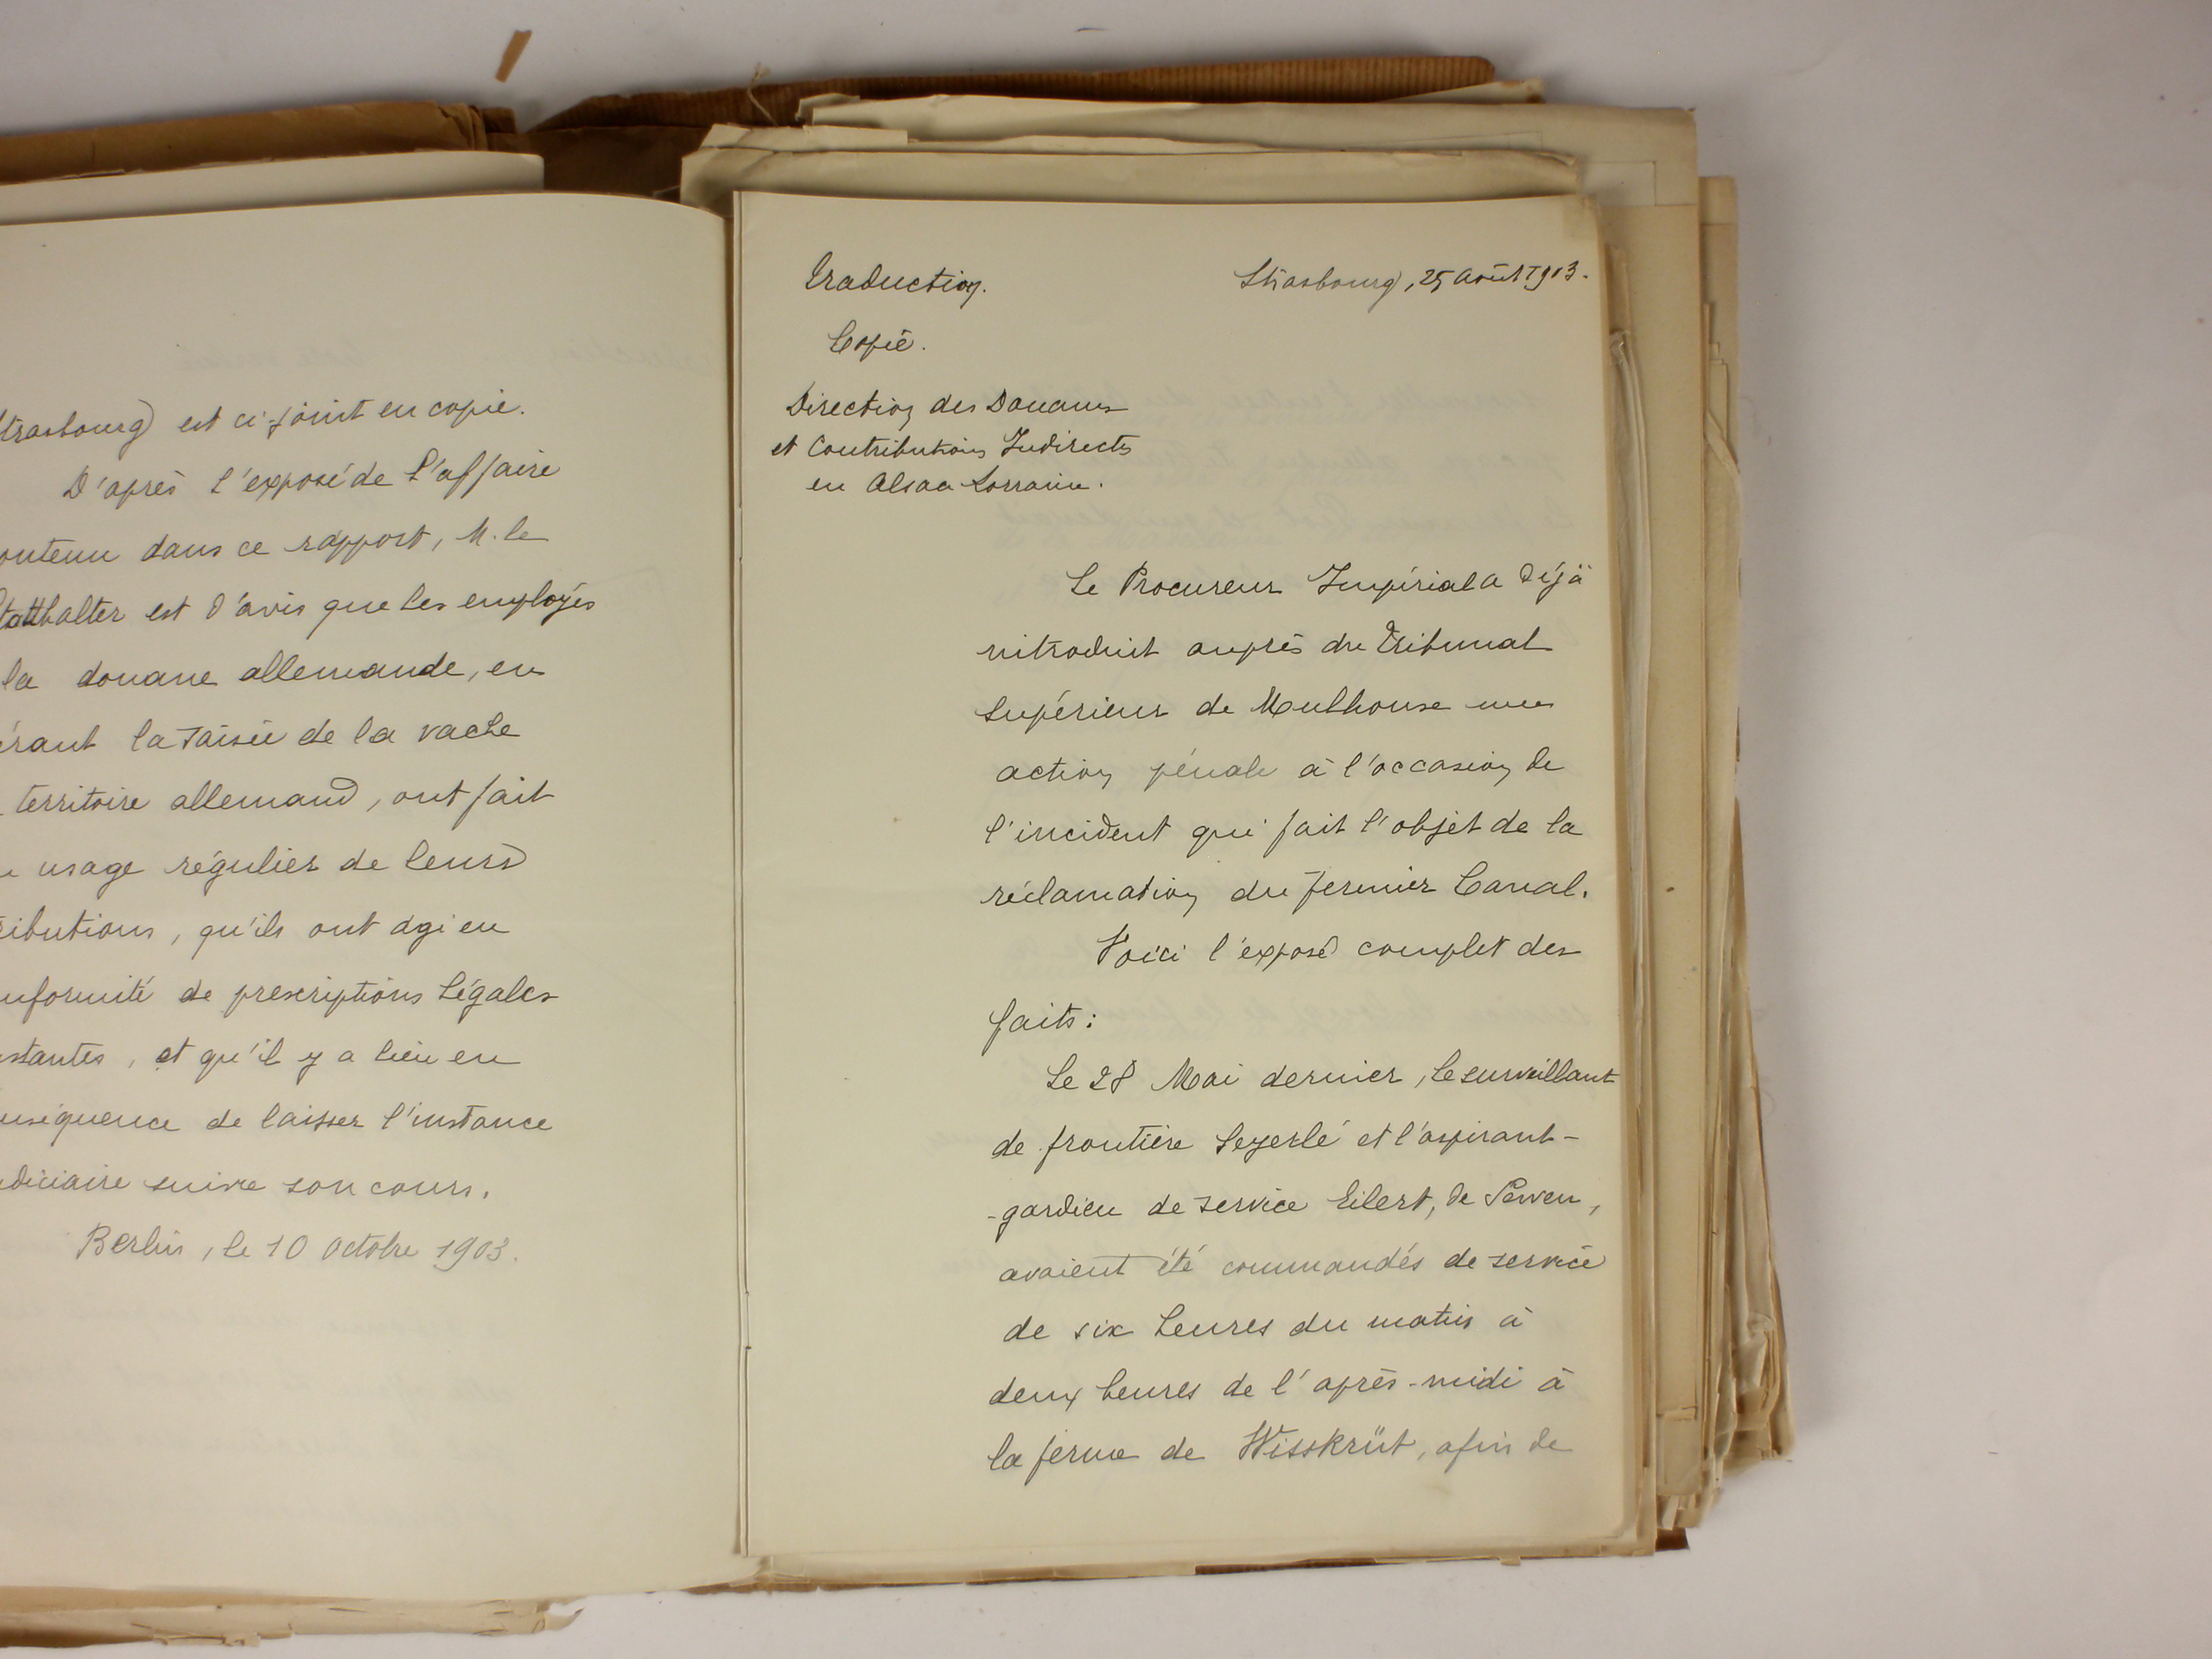 Strasbourg) est ci-joint en copie.
D'après l'exposé de l'affaire
contenu dans ce rapport, M. le
Statthalter est d'avis que les employés
la douane allemande, en
érant la saisie de la vache
territoire allemand, ont fait
usage régulier de leurs
ributions, qu'ils ont agi en
nformité de prescriptions légales
stantes, et qu'il y a lieu en
nséquence de laisser l'instance
diciaire suivre son cours.
Berlin, le 10 Octobre 1903.
Traduction.
Strasbourg, 25 Août 1903.
Copie.
Direction des Douanes
et Contributions Indirectes
en Alsace Lorraine.
Le Procureur Impérial a déjà
introduit auprès du Tribunal
Supérieur de Mulhouse une
action pénale à l'occasion de
l'incident qui fait l'objet de la
réclamation du fermier Canal.
Voici l'exposé complet des
faits:
Le 28 Mai dernier, le surveillant
de frontière Legerlé et l'aspirant-
-gardien de service Eilert, de Sewen,
avaient été commandés de service
de six heures du matin à
deux heures de l'après-midi à
la ferme de Wisskrüt, afin de